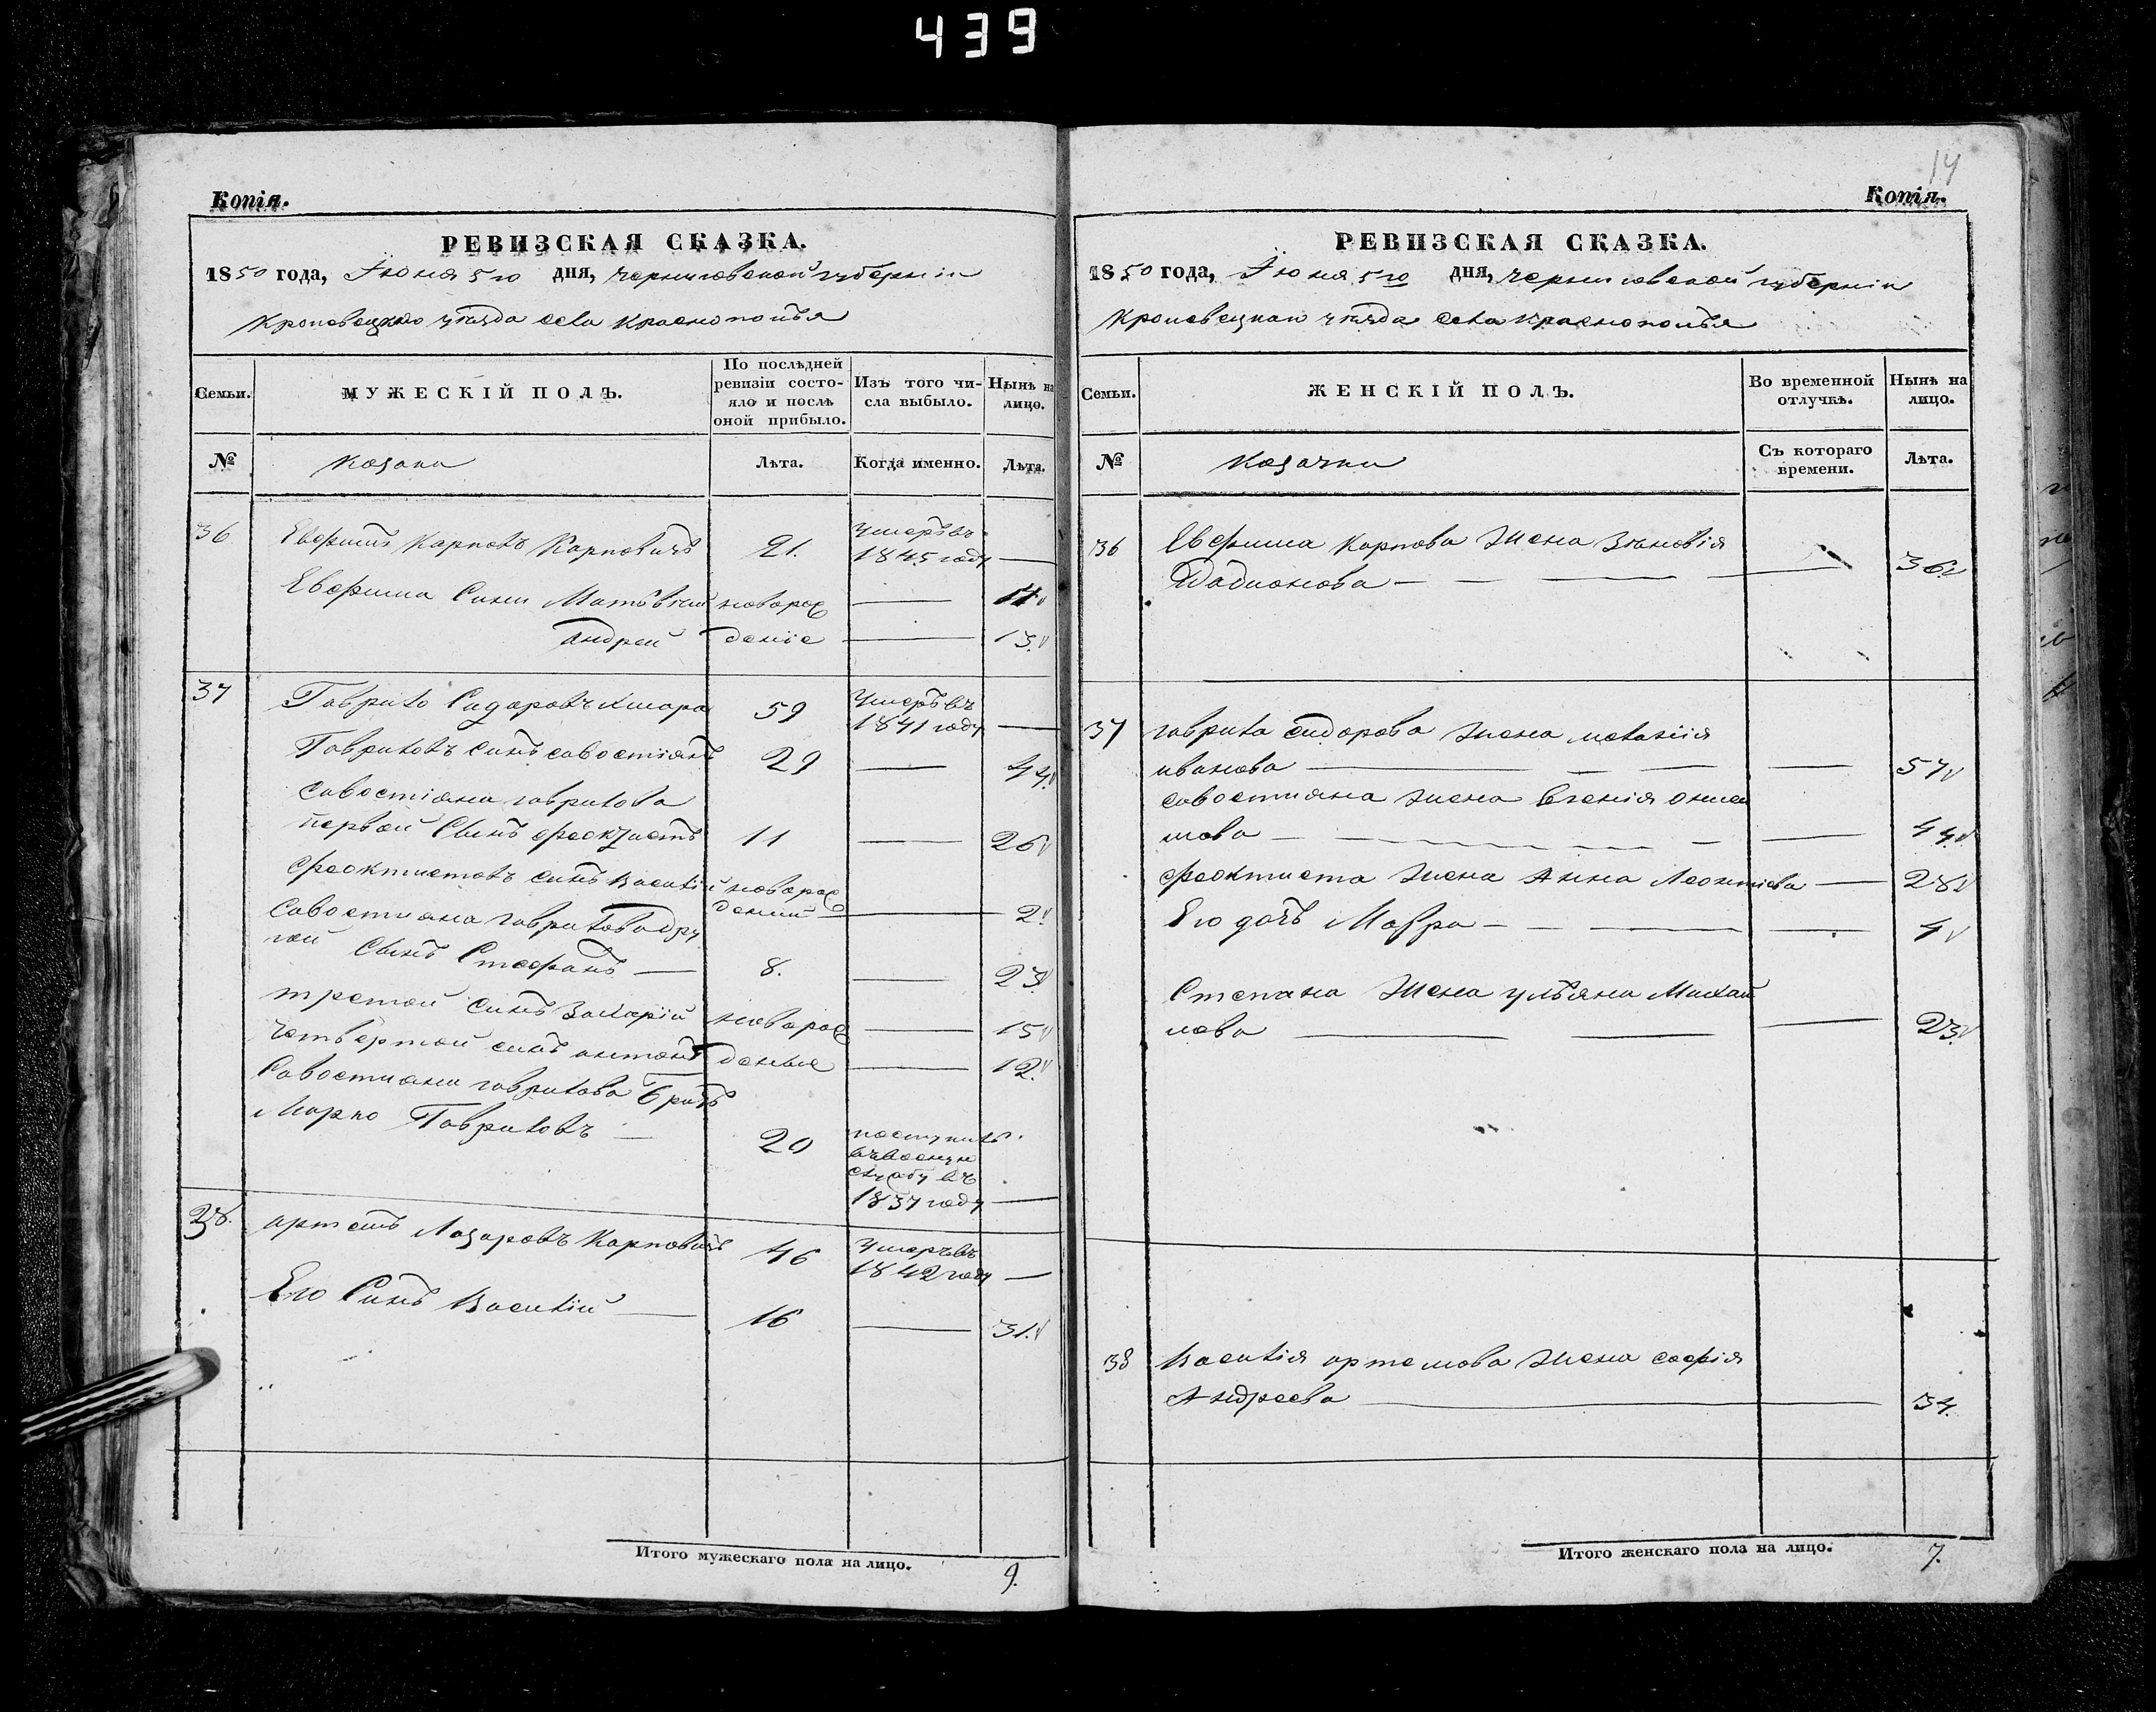 439
Копія.
РЕВИЗСКАЯ СКАЗКА.
1850 года, Іюня 5го дня, Черниговской губерніи
Кролевецкаго уѣзда села Краснополья
Семьи.
МУЖЕСКІЙ ПОЛЪ.
По послѣдней ревизіи состояло и послѣ оной прибыло.
Изъ того числа выбыло.
Нынѣ на лицо.
№
Козаки
Лѣта.
Когда именно.
Лѣта.
36 Евфимъ Карповъ Карповичъ 21. умеръ въ
1845 году —
Евфима Сини Матвѣй новорож — 14
Андрей деніе — 13.
37 Гаврило Сидоровъ 59 Умеръ въ
1841 году —
Гавриловъ синъ савостіянъ 29 — 44.
Савостіяна гаврилова
первой Сынъ феоктистъ 11 — 26
феоктистовъ синъ Василій новорож
деній — 2.
Савостияна гаврилова дру
гой Сынъ Стефанъ — 8. — 23.
третой синъ Захарій новорож — 15
четвертой синъ антонъ деные — 12.
Савостияна гаврилова братъ
Марко Гавриловъ — 20 поступилъ
въ воену
службу въ
1837 году —
38. артемъ Лазаровъ Карповичъ 46 Умеръ въ
1842 году —
Его Синъ Василій — 16 — 31.
Итого мужескаго пола на лицо. 9.
14
Копія.
РЕВИЗСКАЯ СКАЗКА.
1850 года, Іюня 5го дня, Черниговской губерніи
Кролевецкаго уѣзда села Краснополья
Семьи.
ЖЕНСКІЙ ПОЛЪ.
Во временной отлучкѣ.
Нынѣ на лицо.
№
Козачки
Съ котораго времени.
Лѣта.
36 Евфима Карпова жена Зѣновія
Радионова — 36.
37 гаврила сидорова жена меланія
иванова — 57
савостияна жена Евгенія
— 44.
феоктиста жена Анна Леонтіева — 28
Его дочъ Мавра — 4
Степана жена ульяна Михай
лова — 23.
38 Василія артемова жена софія
Андреева — 34.
Итого женскаго пола на лицо. 7.